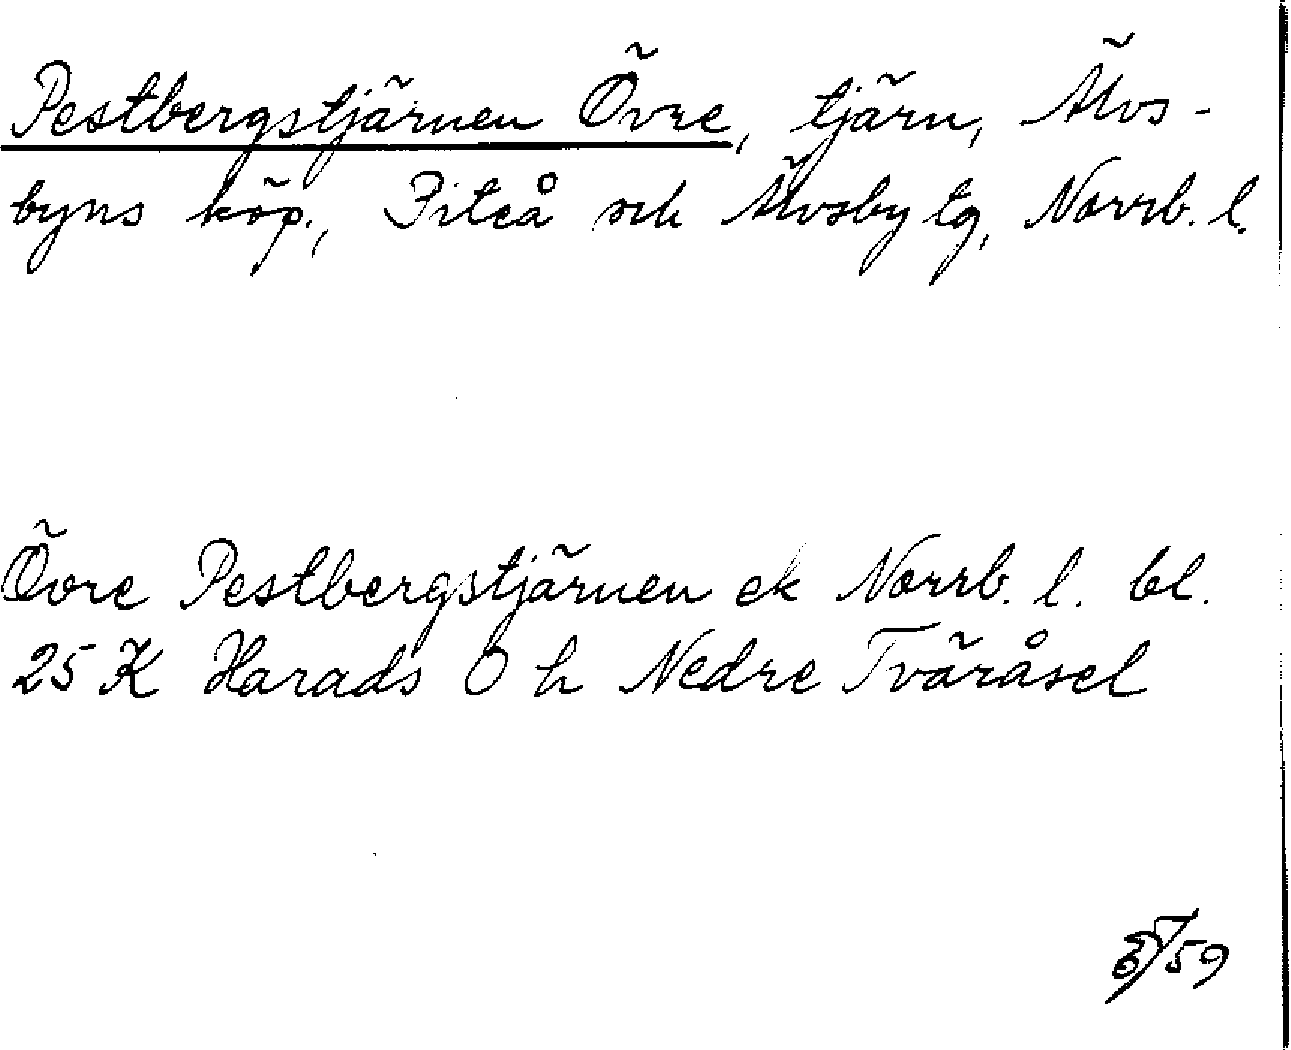 Pestbergstjärnen Övre, tjärn, Älvs-
byns köp., Piteå och Älvsby tg, Norrb. l.
Övre Pestbergstjärnen ek Norrb. l. bl.
25 K Harads O h Nedre Tväråsel
/59